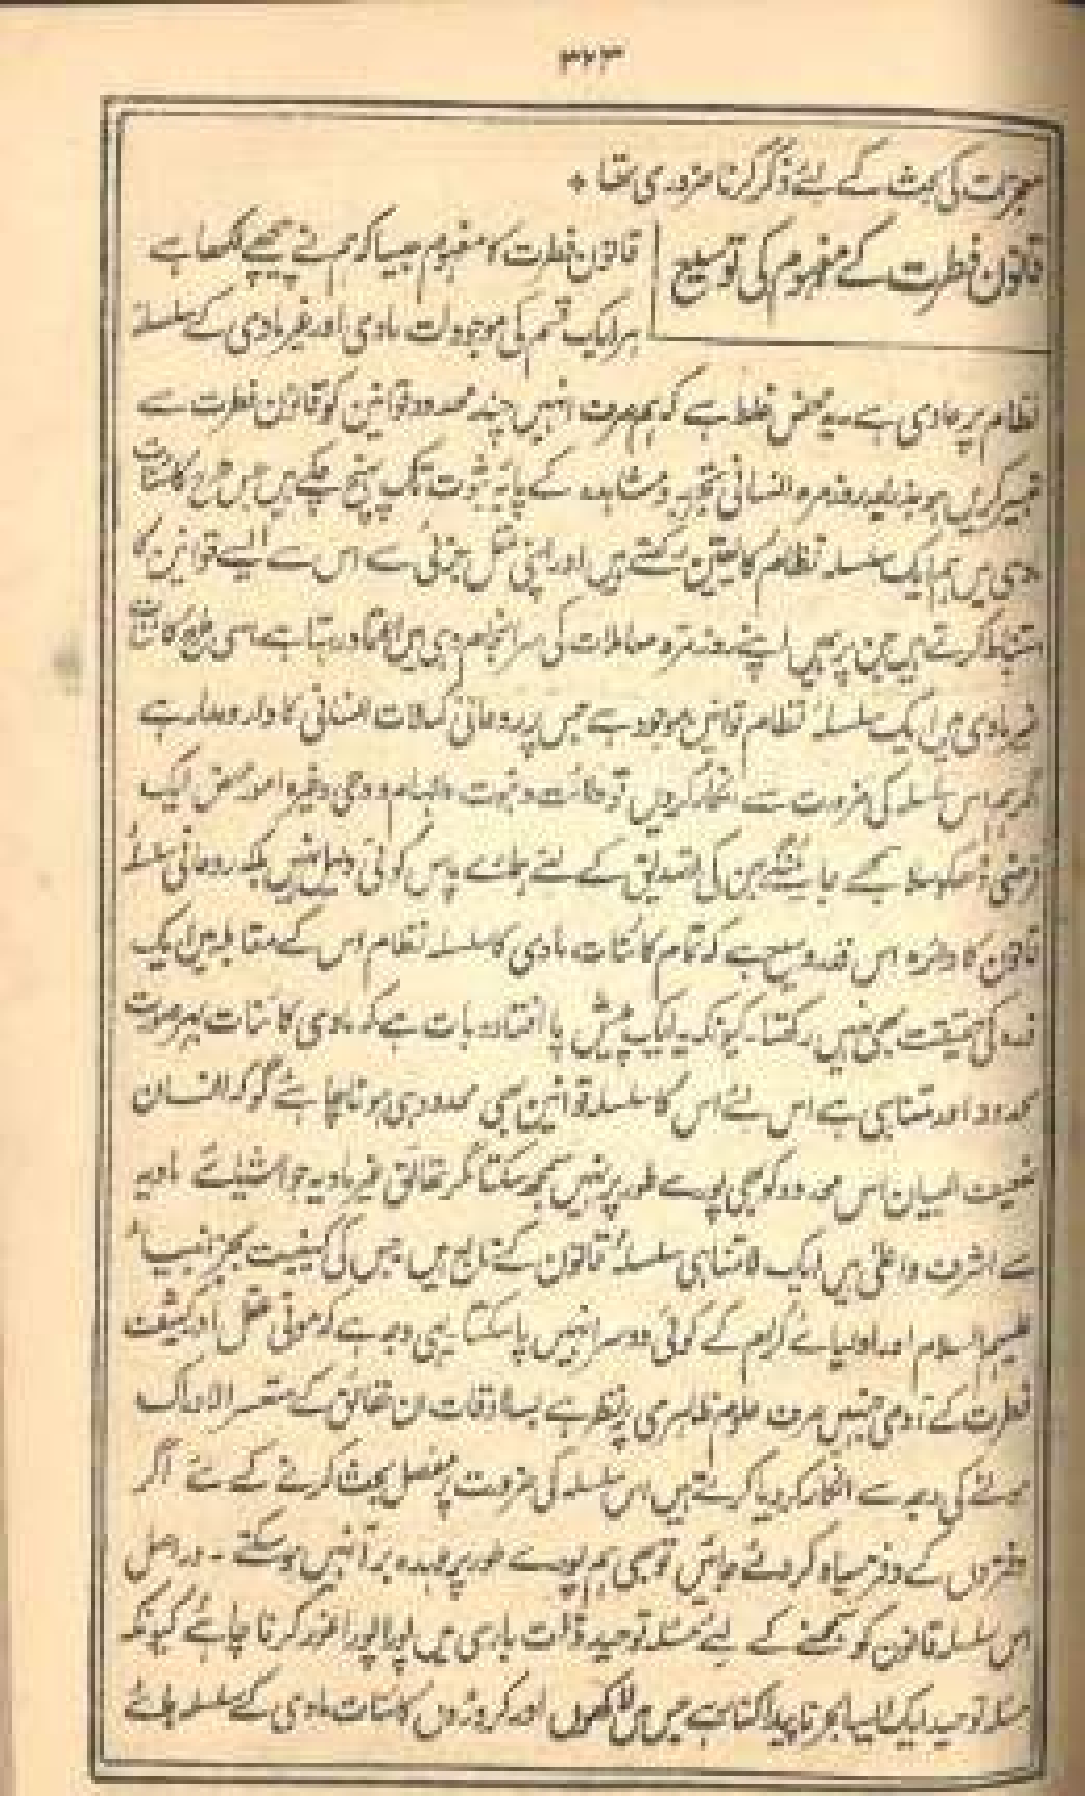 ۳۲۳
معجزات کی بحث کے لئے ذکر کرنا ضروری تھا *
قانون فطرت کے مفہوم کی توسیع
قانون فطرت کا مفہوم جیسا کہ ہم نے پیچھے لکھا ہے
ہر ایک قسم کی موجودات مادی اور غیر مادی کے سلسلہ
نظام پر حاوی ہے۔ یہ محض غلط ہے کہ ہم صرف انہیں چند محدود قوانین کو قانون فطرت سے
تعبیر کریں جو بذریعہ روزمرہ انسانی تجربہ و مشاہدہ کے پایۂ ثبوت تک پہنچ چکے ہیں جس طرح کائنات
مادی میں ہم ایک سلسلہ نظام کا یقین رکھتے ہیں اور اپنی عقل جزئی سے اس سے ایسے قوانین کا
استنباط کرتے ہیں جن پر ہمیں اپنے روزمرہ معاملات کی سرانجام دہی میں اعتماد رہتا ہے، اسی طرح کائنات
غیر مادی میں ایک سلسلۂ نظام قوانین موجود ہے جس پر روحانی کمالات انسانی کا دار و مدار ہے
اگر ہم اس سلسلہ کی ضرورت سے انکار کردیں تو ولایت و نبوت و الہام و وحی وغیرہ امور محض ایک
فرضی ڈھکوسلا سمجھے جائینگے جن کی تصدیق کے لئے ہمارے پاس کوئی دلیل نہیں بلکہ روحانی سلسلۂ
قانون کا دائرہ اس قدر وسیع ہے کہ تمام کائنات مادی کا سلسلہ نظام اس کے مقابلہ میں ایک
ذرہ کی حقیقت بھی نہیں رکھتا۔ کیونکہ یہ ایک پیش پا افتادہ بات ہے کہ مادی کائنات بہر صورت
محدود اور متناہی ہے اس لئے اس کا سلسلہ قوانین بھی محدود ہی ہونا چاہئے گو کہ انسان
ضعیف البیان اس محدود کو بھی پورے طور پر نہیں سمجھ سکتا مگر حقائق غیر مادیہ جو اشیائے مادیہ
سے اشرف و اعلیٰ ہیں ایک لاتناہی سلسلۂ قانون کے تابع ہیں جس کی کیفیت بجز انبیاء
علیہم السلام اور اولیائے کرام کے کوئی دوسرا نہیں پا سکتا۔ یہی وجہ ہے کہ موٹی عقل اور کثیف
فطرت کے آدمی جنہیں صرف علوم ظاہری پر نظر ہے بسا اوقات ان حقائق کے متعسر الادراک
ہونے کی وجہ سے انکار کردیا کرتے ہیں اس سلسلہ کی ضرورت پر مفصل بحث کرنے کے لئے اگر
دفتروں کے دفتر سیاہ کر دئے جائیں تو بھی ہم پورے طور پر عہدہ برآ نہیں ہوسکتے ۔ دراصل
اس سلسلہ قانون کو سمجھنے کے لیے مسئلہ توحید ذات باری میں پورا پورا غور کرنا چاہئے کیونکہ
مسئلہ توحید ایک ایسا بحر ناپیدا کنار ہے جس میں لاکھوں اور کروڑوں کائنات مادی کے سلسلہ ہائے